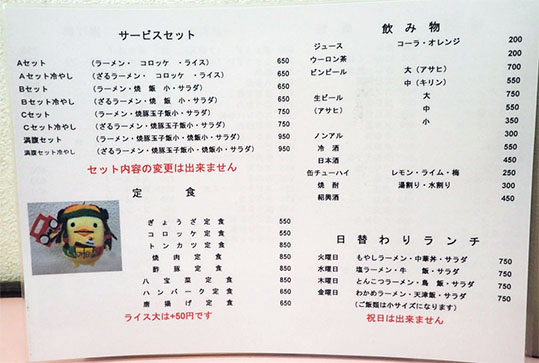 サービスセット
Aセット (ラーメン・ コロッケ ・ライス) 650
Aセット冷やし (ざるラーメン・ コロッケ ・ライス) 650
Bセット (ラーメン・焼 飯 小・サラダ) 650
Bセット冷やし (ざるラーメン・焼 飯 小・サラダ) 650
Cセット (ラーメン・焼豚玉子飯小・サラダ) 750
Cセット冷やし (ざるラーメン・焼豚玉子飯小・サラダ) 750
満腹セット (ラーメン・焼豚玉子飯小・焼飯小・サラダ) 950
満腹セット冷やし (ざるラーメン・焼豚玉子飯小・焼飯小・サラダ) 950
セット内容の変更は出来ません
定 食
ぎょうざ定食 550
コロッケ定食 550
トンカツ定食 850
焼肉定食 850
酢豚定食 850
八宝菜定食 850
ハンバーグ定食 650
唐揚げ定食 650
ライス大は+50円です
飲み物
ジュース コーラ・オレンジ 200
ウーロン茶 200
ビンビール 大(アサヒ) 700
中(キリン) 550
生ビール 大 750
(アサヒ) 中 550
小 350
ノンアル 300
冷酒 550
日本酒 450
缶チューハイ レモン・ライム・梅 250
焼酎 湯割り・水割り 300
紹興酒 450
日替わりランチ
火曜日 もやしラーメン・中華丼・サラダ 750
水曜日 塩ラーメン・牛 飯・サラダ 750
木曜日 とんこつラーメン・鳥 飯・サラダ 750
金曜日 わかめラーメン・天津飯・サラダ 750
(ご飯類は小サイズになります)
祝日は出来ません